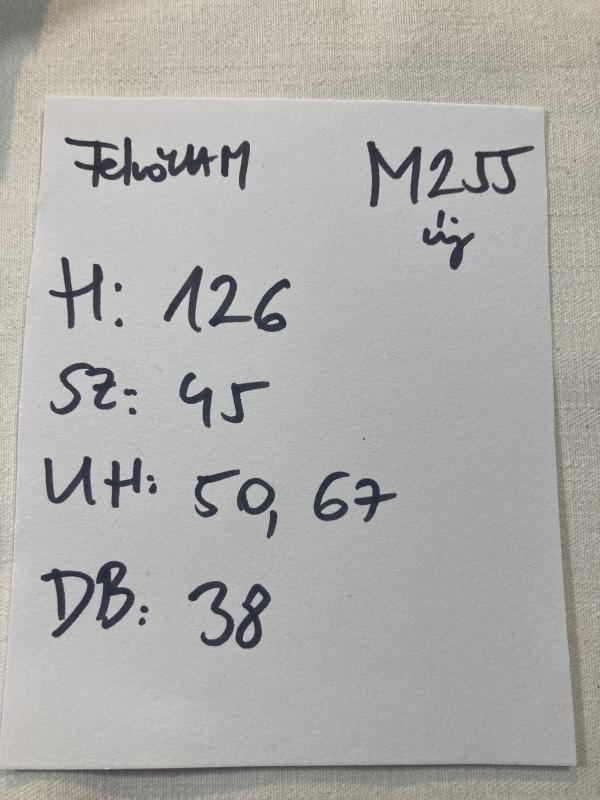 M255
új
H: 126
SZ: 45
UH: 50, 67
DB: 38